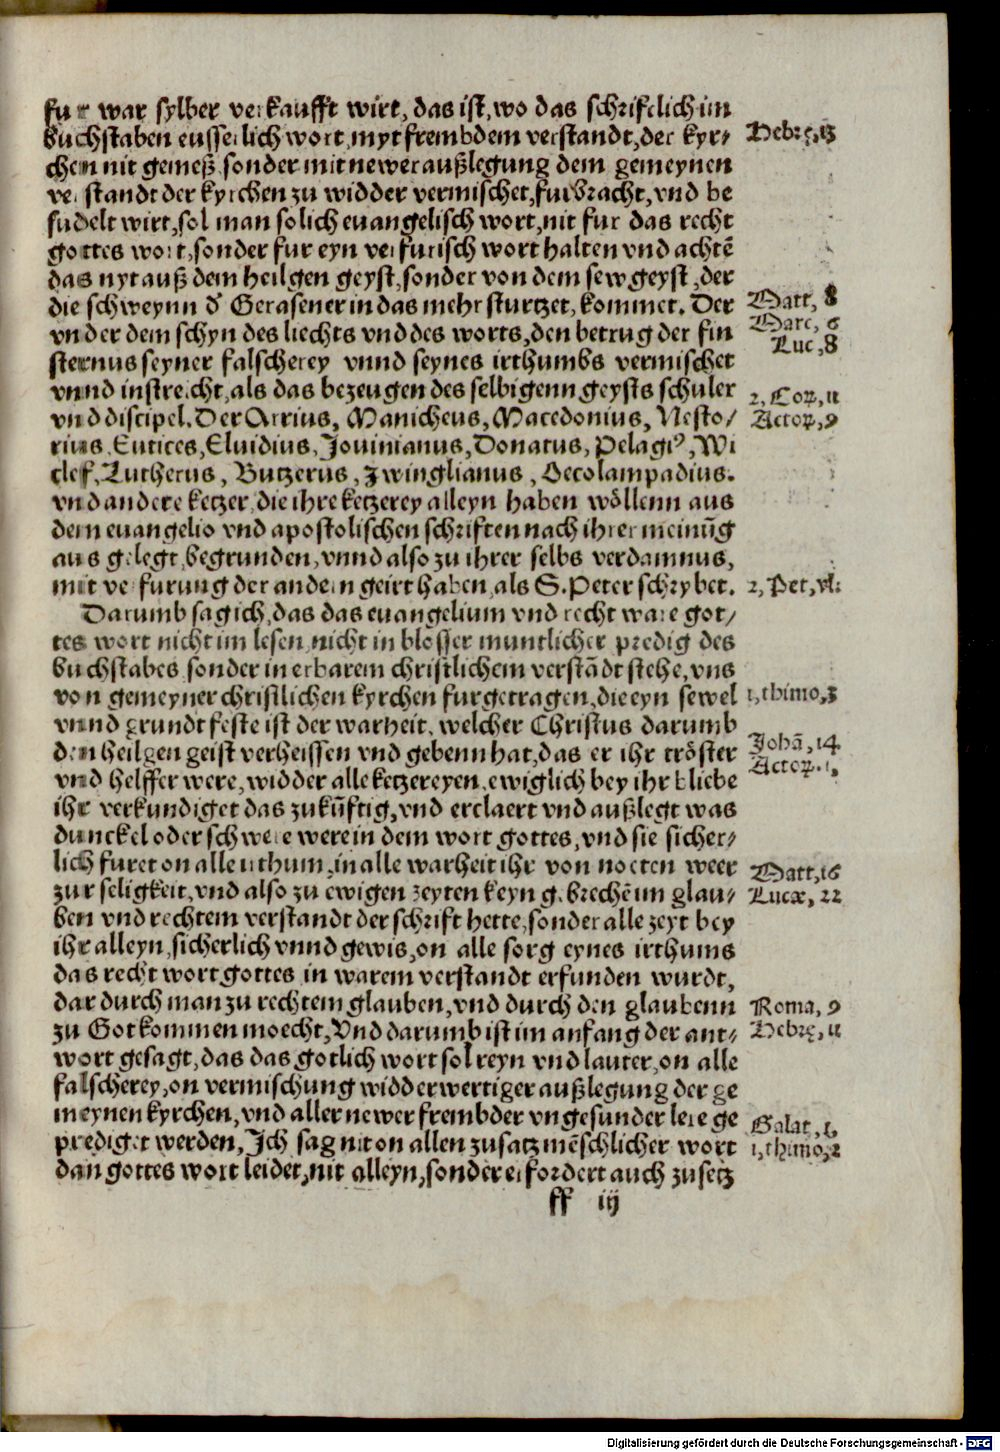 fur war sylber verkaufft wirt, das ist, wo das schrifclich im
buchstaben eusserlich wort, myt frembdem verstandt, der kyr⸗
chen nit gemeß, sonder mit newer außlegung dem gemeynen
verstandt der kyrchen zu widder vermischet, furbracht, vnd be
sudelt wirt, sol man solich euangelisch wort, nit fur das recht
gottes wort, sonder fur eyn verfurisch wort halten vnd achtē
das nyt auß dem heilgen geyst, sonder von dem sewgeyst, der
die schweynn d' Gerasener in das mehr sturtzet, kommet. Der
vnder dem schyn des liechts vnd des worts, den betrug der fin
sternus seyner falscherey vnnd seynes irthumbs vermischet
vnnd instreicht, als das bezeugen des selbigenn geysts schuler
vnd discipel. Der Arrius, Manicheus, Macedonius, Nesto/
rius, Eutices, Eluidius, Jouinianus, Donatus, Pelagi⁹, Wi
clef, Lutherus, Butzerus, Zwinglianus, Oecolampadius.
vnd andere ketzer, die ihre ketzerey alleyn haben wöllenn aus
dem euangelio vnd apostolischen schriften nach ihrer meinūg
aus gelegt, begrunden, vnnd also zu ihrer selbs verdamnus,
mit verfurung der andern geirt haben, als S. Peter schrybet.
Darumb sag ich, das das euangelium vnd recht ware got/
tes wort nicht im lesen, nicht in blosser muntlicher predig des
buchstabes, sonder in erbarem christlichem verstādt stehe, vns
von gemeyner christlichen kyrchen furgetragen, die eyn sewel
vnnd grundtfeste ist der warheit, welcher Christus darumb
den heilgen geist verheissen vnd gebenn hat, das er ihr tröster
vnd helffer were, widder alle ketzereyen, ewiglich bey ihr bliebe
ihr verkundiget das zukūftig, vnd erclaert vnd außlegt was
dunckel oder schwere were in dem wort gottes, vnd sie sicher⸗
lich furet on alle irthum, in alle warheit ihr von noeten weer
zur seligkeit, vnd also zu ewigen zeyten keyn gebrechē im glau⸗
ben vnd rechtem verstandt der schrift hette, sonder alle zeyt bey
ihr alleyn, sicherlich vnnd gewis, on alle sorg eynes irthums
das recht wort gottes in warem verstandt erfunden wurdt,
dar durch man zu rechtem glauben, vnd durch den glaubenn
zu Got kommen moecht, Vnd darumb ist im anfang der ant⸗
wort gesagt, das das gotlich wort sol reyn vnd lauter, on alle
falscherey, on vermischung widderwertiger außlegung der ge
meynen kyrchen, vnd aller newer frembder vngesunder lere ge
prediget werden, Ich sag nit on allen zusatz mēschlicher wort
dan gottes wort leidet, nit alleyn, sonder erfordert auch zusetz
ff iij
Hebrę, 13
Matt, 8
Marc, 6
Luc, 8
2, Coꝝ, 11
Actoꝝ, 9
2, Pet,
1, thimo, 3
Johā, 14
Actoꝝ. 1,
Matt, 16
Lucæ, 22
Roma, 9
Hebrę, 11
Galat, 1,
1, thimo, 2
Digitalisierung gefördert durch die Deutsche Forschungsgemeinschaft - DFG